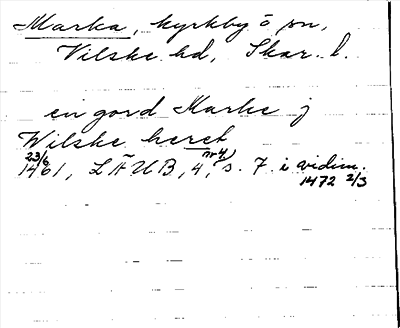 Marka, kyrkby o sn,
Vilske hd, Skar. l.
en gord Marke j
Wilske heret
23/6 1461, LÄUB, 4, nr 4, s. 7. i vidim.
1472 2/3